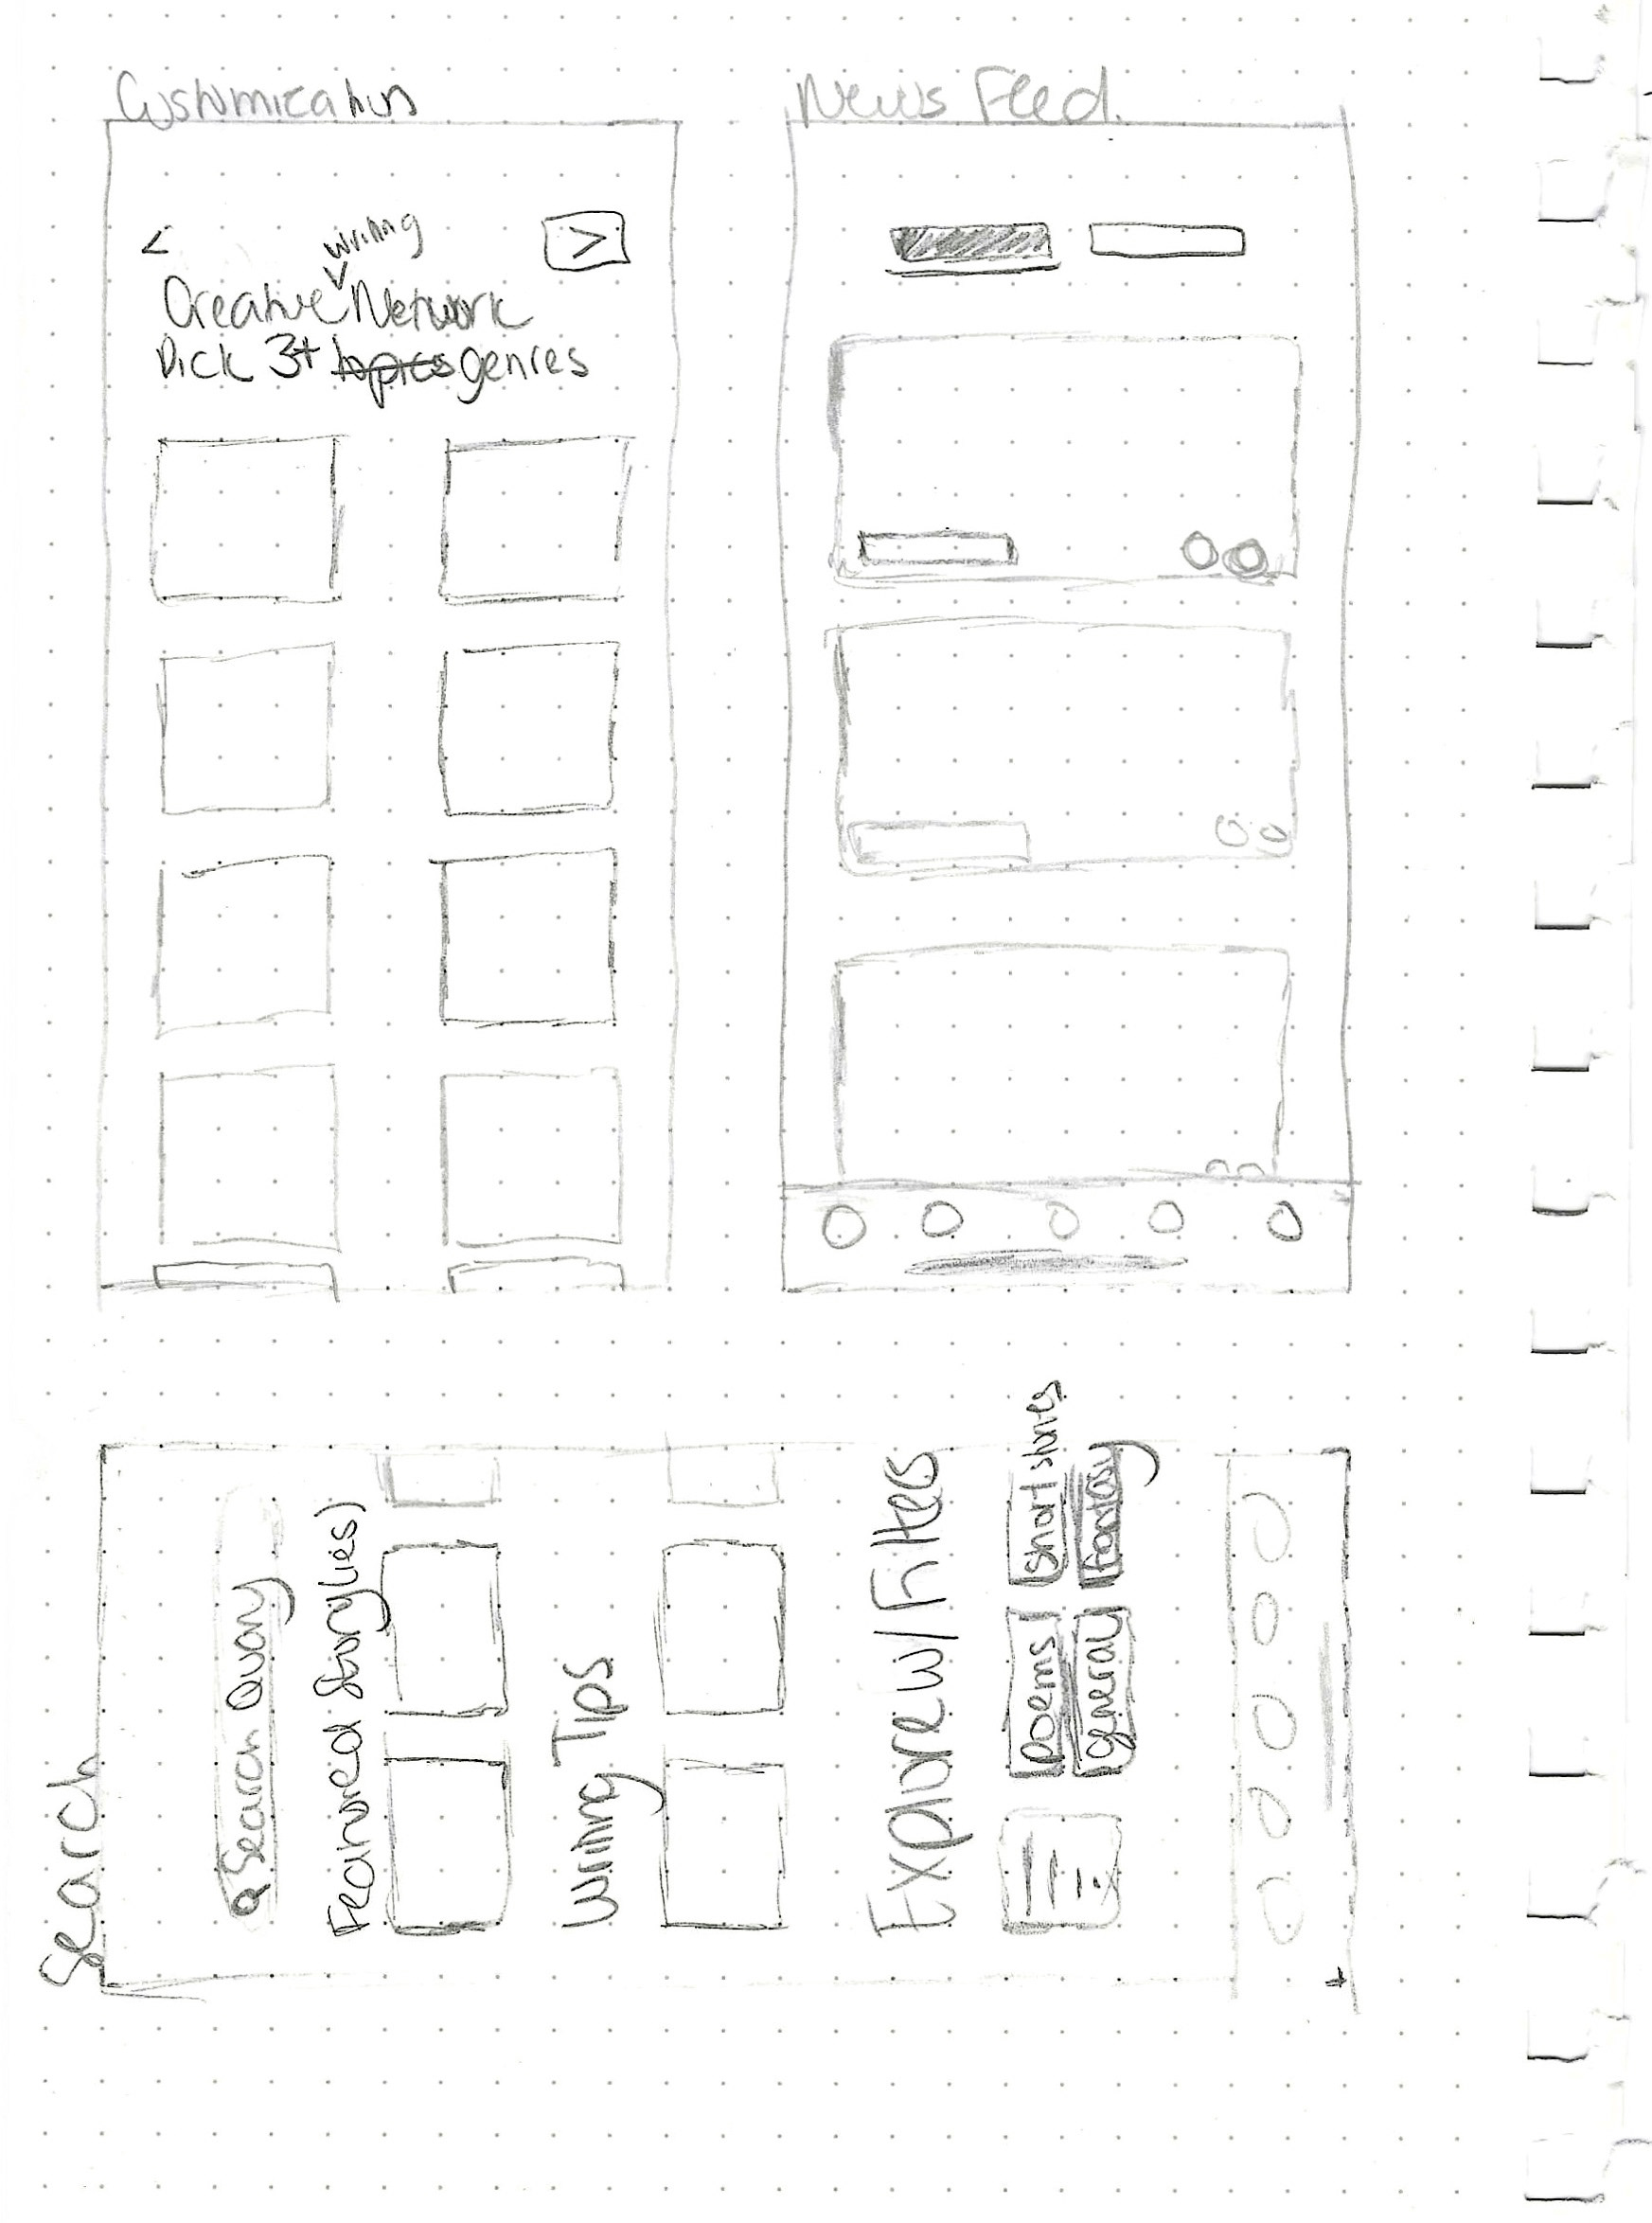 Customization
News Feed
<
>
writing
Creative Network
Pick 3+ topics genres
Search
Search Query
Featured Story(ies)
Writing Tips
Explore w/ Filters
Poems
Short stories
General
Fantasy